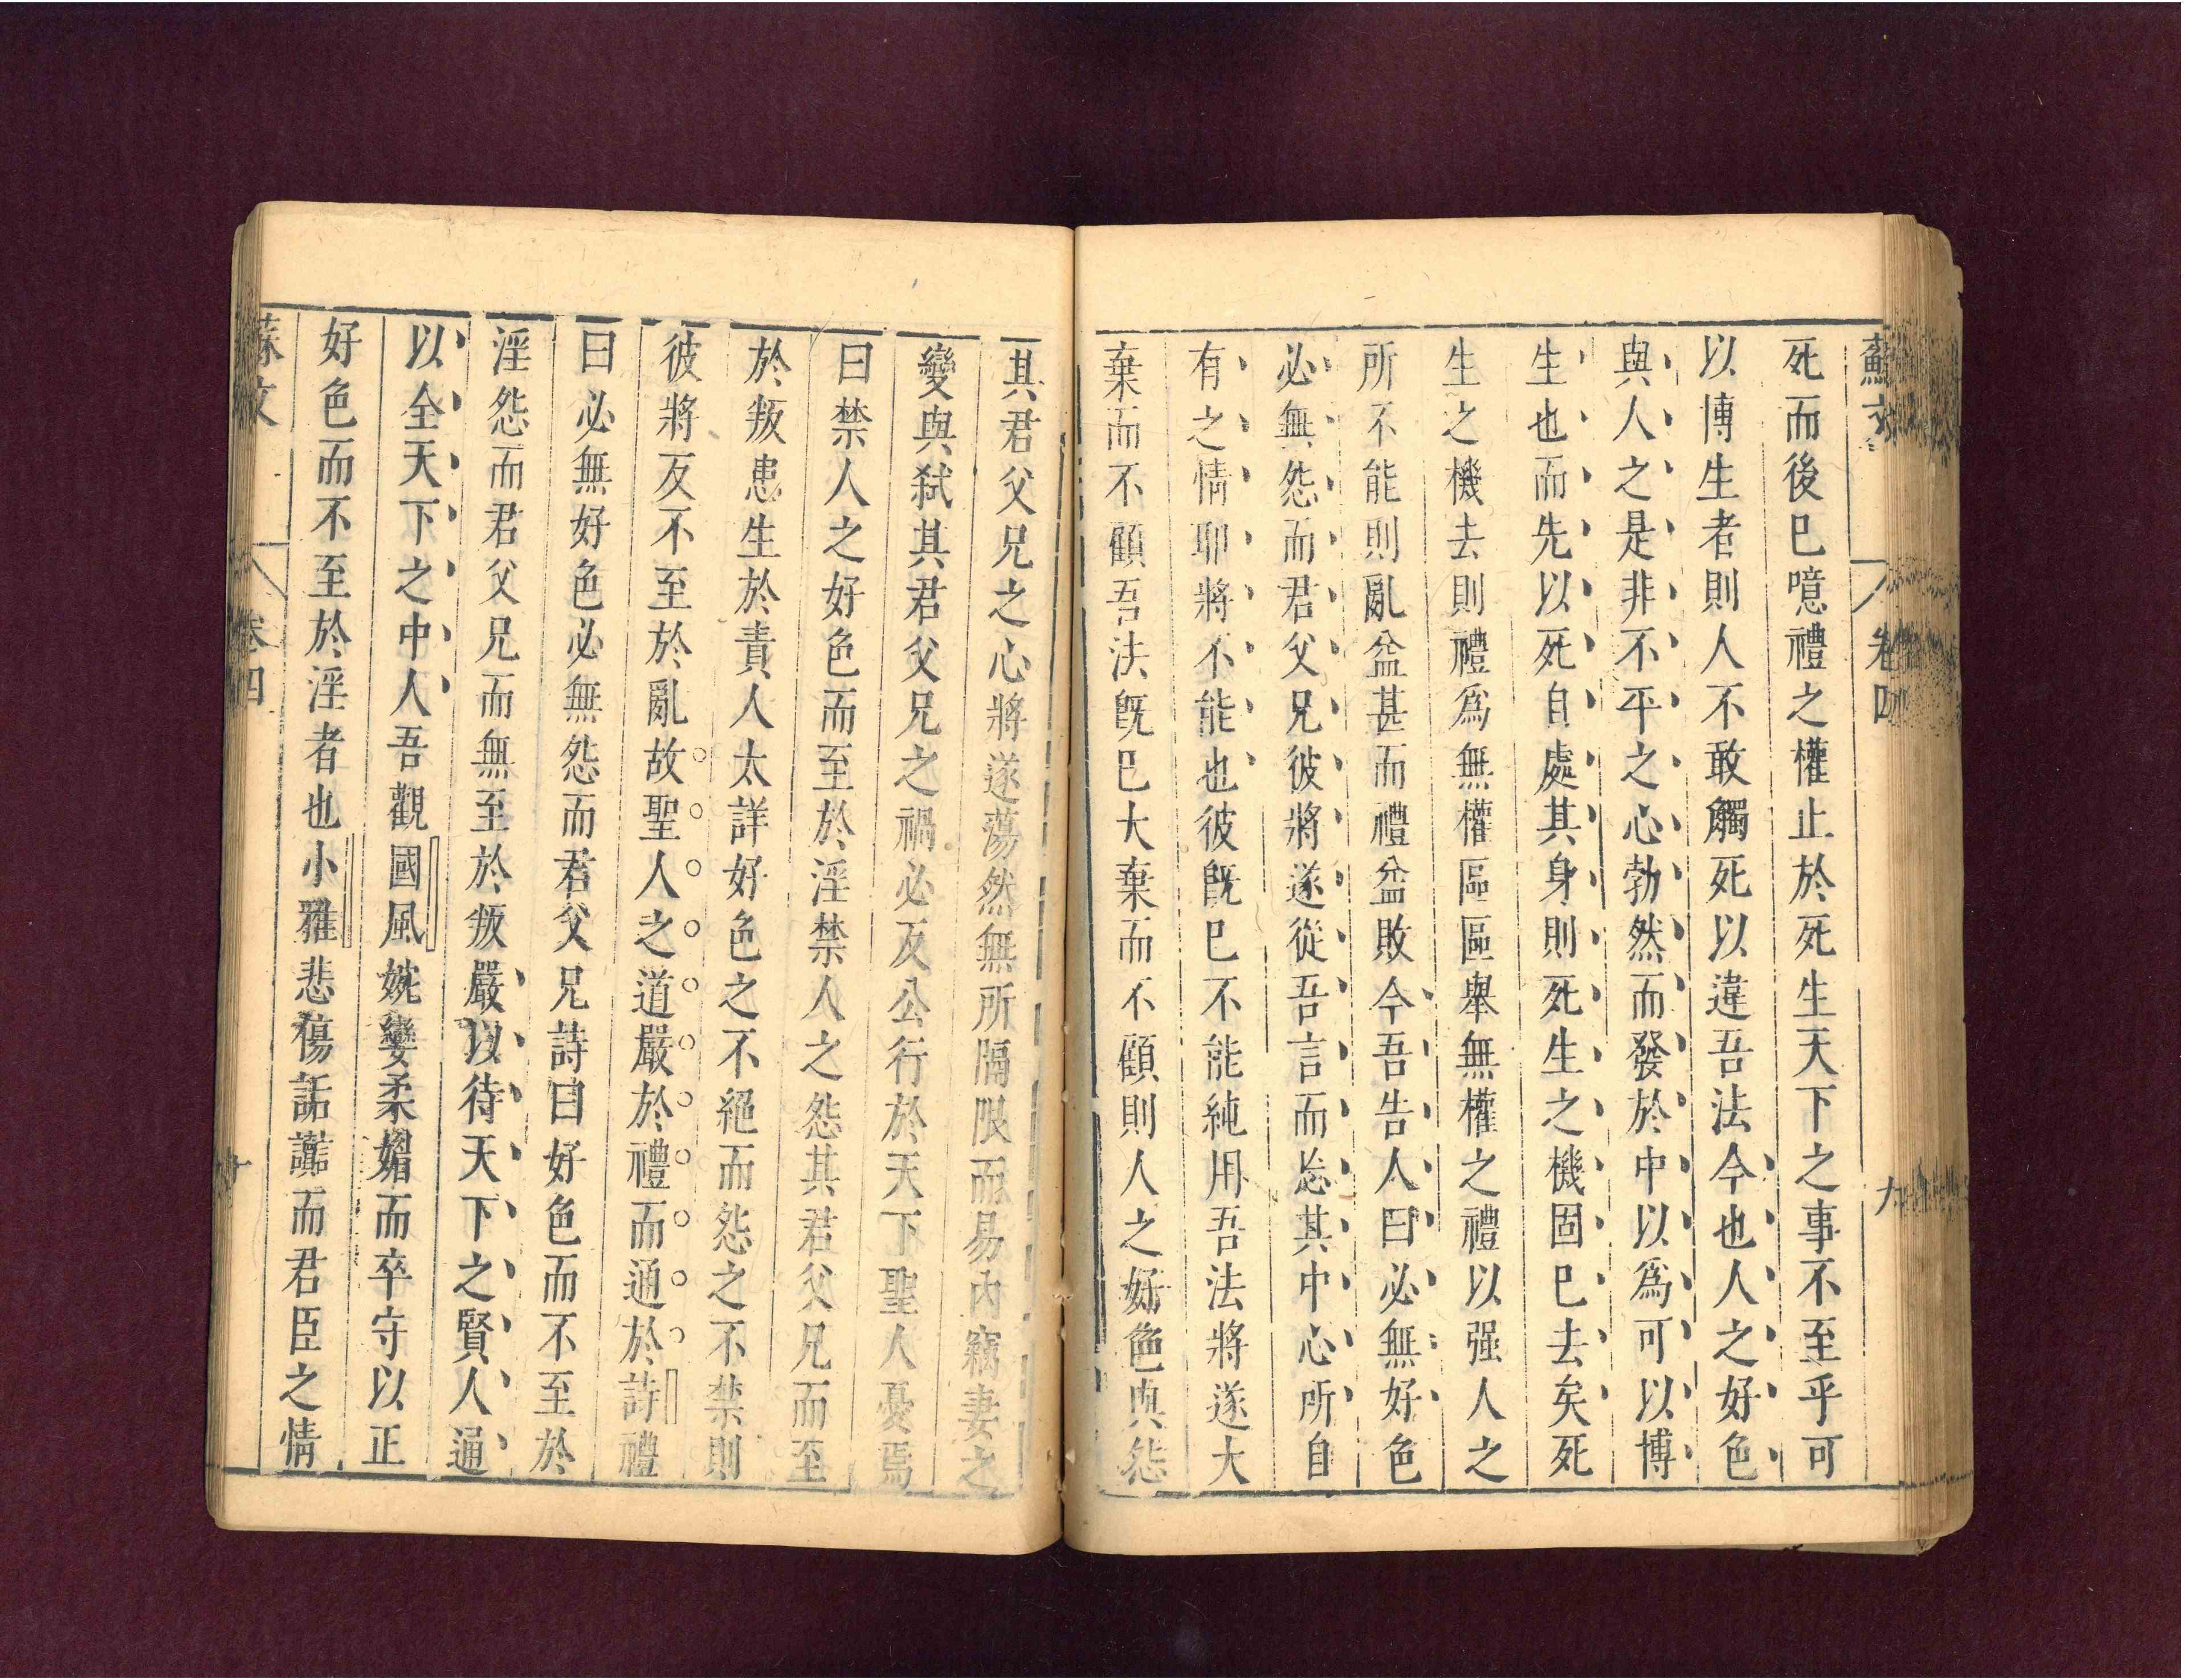 蘇文
卷四
九
死而後已噫禮之權止於死生天下之事不至乎可
以博生者則人不敢觸死以違吾法今也人之好色
與人之是非不平之心勃然而發於中以爲可以博
生也而先以死自處其身則死生之機固已去矣死
生之機去則禮爲無權區區舉無權之禮以强人之
所不能則亂益甚而禮益敗今吾告人曰必無好色
必無怨而君父兄彼將遂從吾言而忘其中心所自
有之情耶將不能也彼旣已不能純用吾法將遂大
棄而不顧吾法旣已大棄而不顧則人之好色與怨
其君父兄之心將遂蕩然無所隔限而易內竊妻之
變與弑其君父兄之禍必反公行於天下聖人憂焉
曰禁人之好色而至於淫禁人之怨其君父兄而至
於叛患生於責人太詳好色之不絕而怨之不禁則
彼將反不至於亂故聖人之道嚴於禮而通於詩禮
曰必無好色必無怨而君父兄詩曰好色而不至於
淫怨而君父兄而無至於叛嚴以待天下之賢人通
以全天下之中人吾觀國風婉孌柔媚而卒守以正
好色而不至於淫者也小雅悲傷詬讟而君臣之情
蘇文
卷四
十